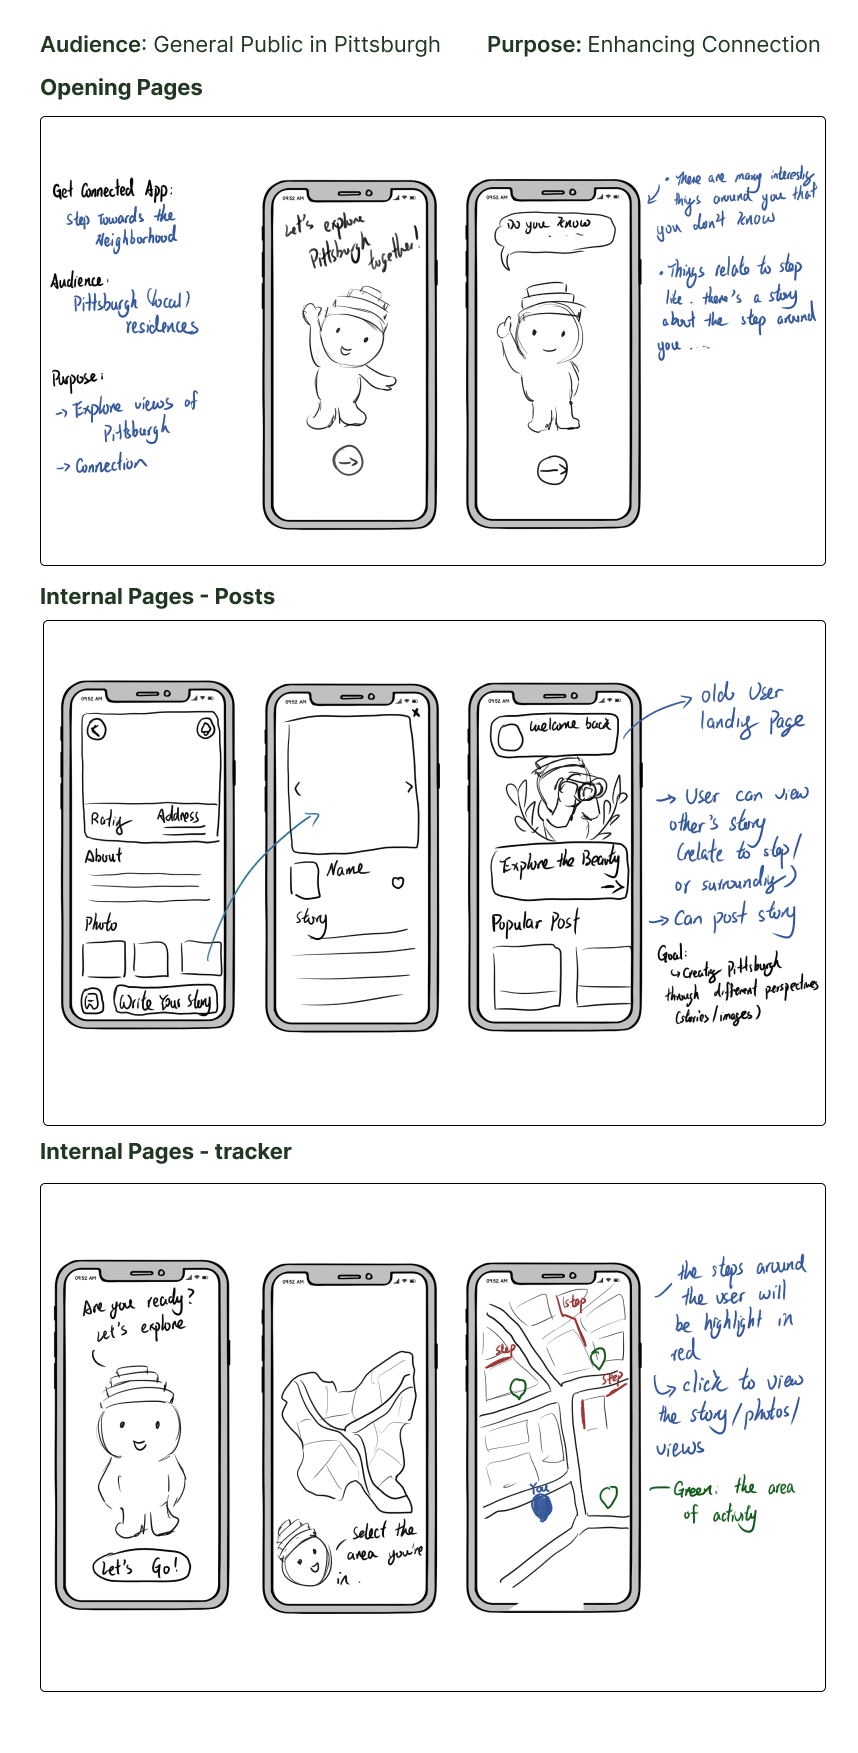 Audience: General Public in Pittsburgh
Purpose: Enhancing Connection
Opening Pages
Get Connected App:
Step Towards the
Neighborhood
Audience:
Pittsburgh (local)
residences
Purpose:
-> Explore views of
Pittsburgh
-> Connection
09:52 AM
Let's explore
Pittsburgh
together!
->
09:52 AM
Do you know
....
->
• There are many interesting
things around you that
you don't know
• Things relate to step
like. there's a story
about the step around
you ...
Internal Pages - Posts
09:52 AM
<
Rating
Address
About
Photo
Write Your Story
09:52 AM
x
<
>
Name
Story
09:52 AM
welcome back
Explore the Beauty
->
Popular Post
old User
landing Page
-> User can view
other's story
(relate to step/
or surrounding)
-> Can post story
Goal:
↳ Creating Pittsburgh
through different perspectives
(stories/images)
Internal Pages - tracker
09:52 AM
Are you ready?
Let's explore
Let's Go!
09:52 AM
select the
area you're
in.
09:52 AM
step
step
step
You
the steps around
the user will
be highlight in
red
↳ click to view
the story/photos/
views
— Green: the area
of activity